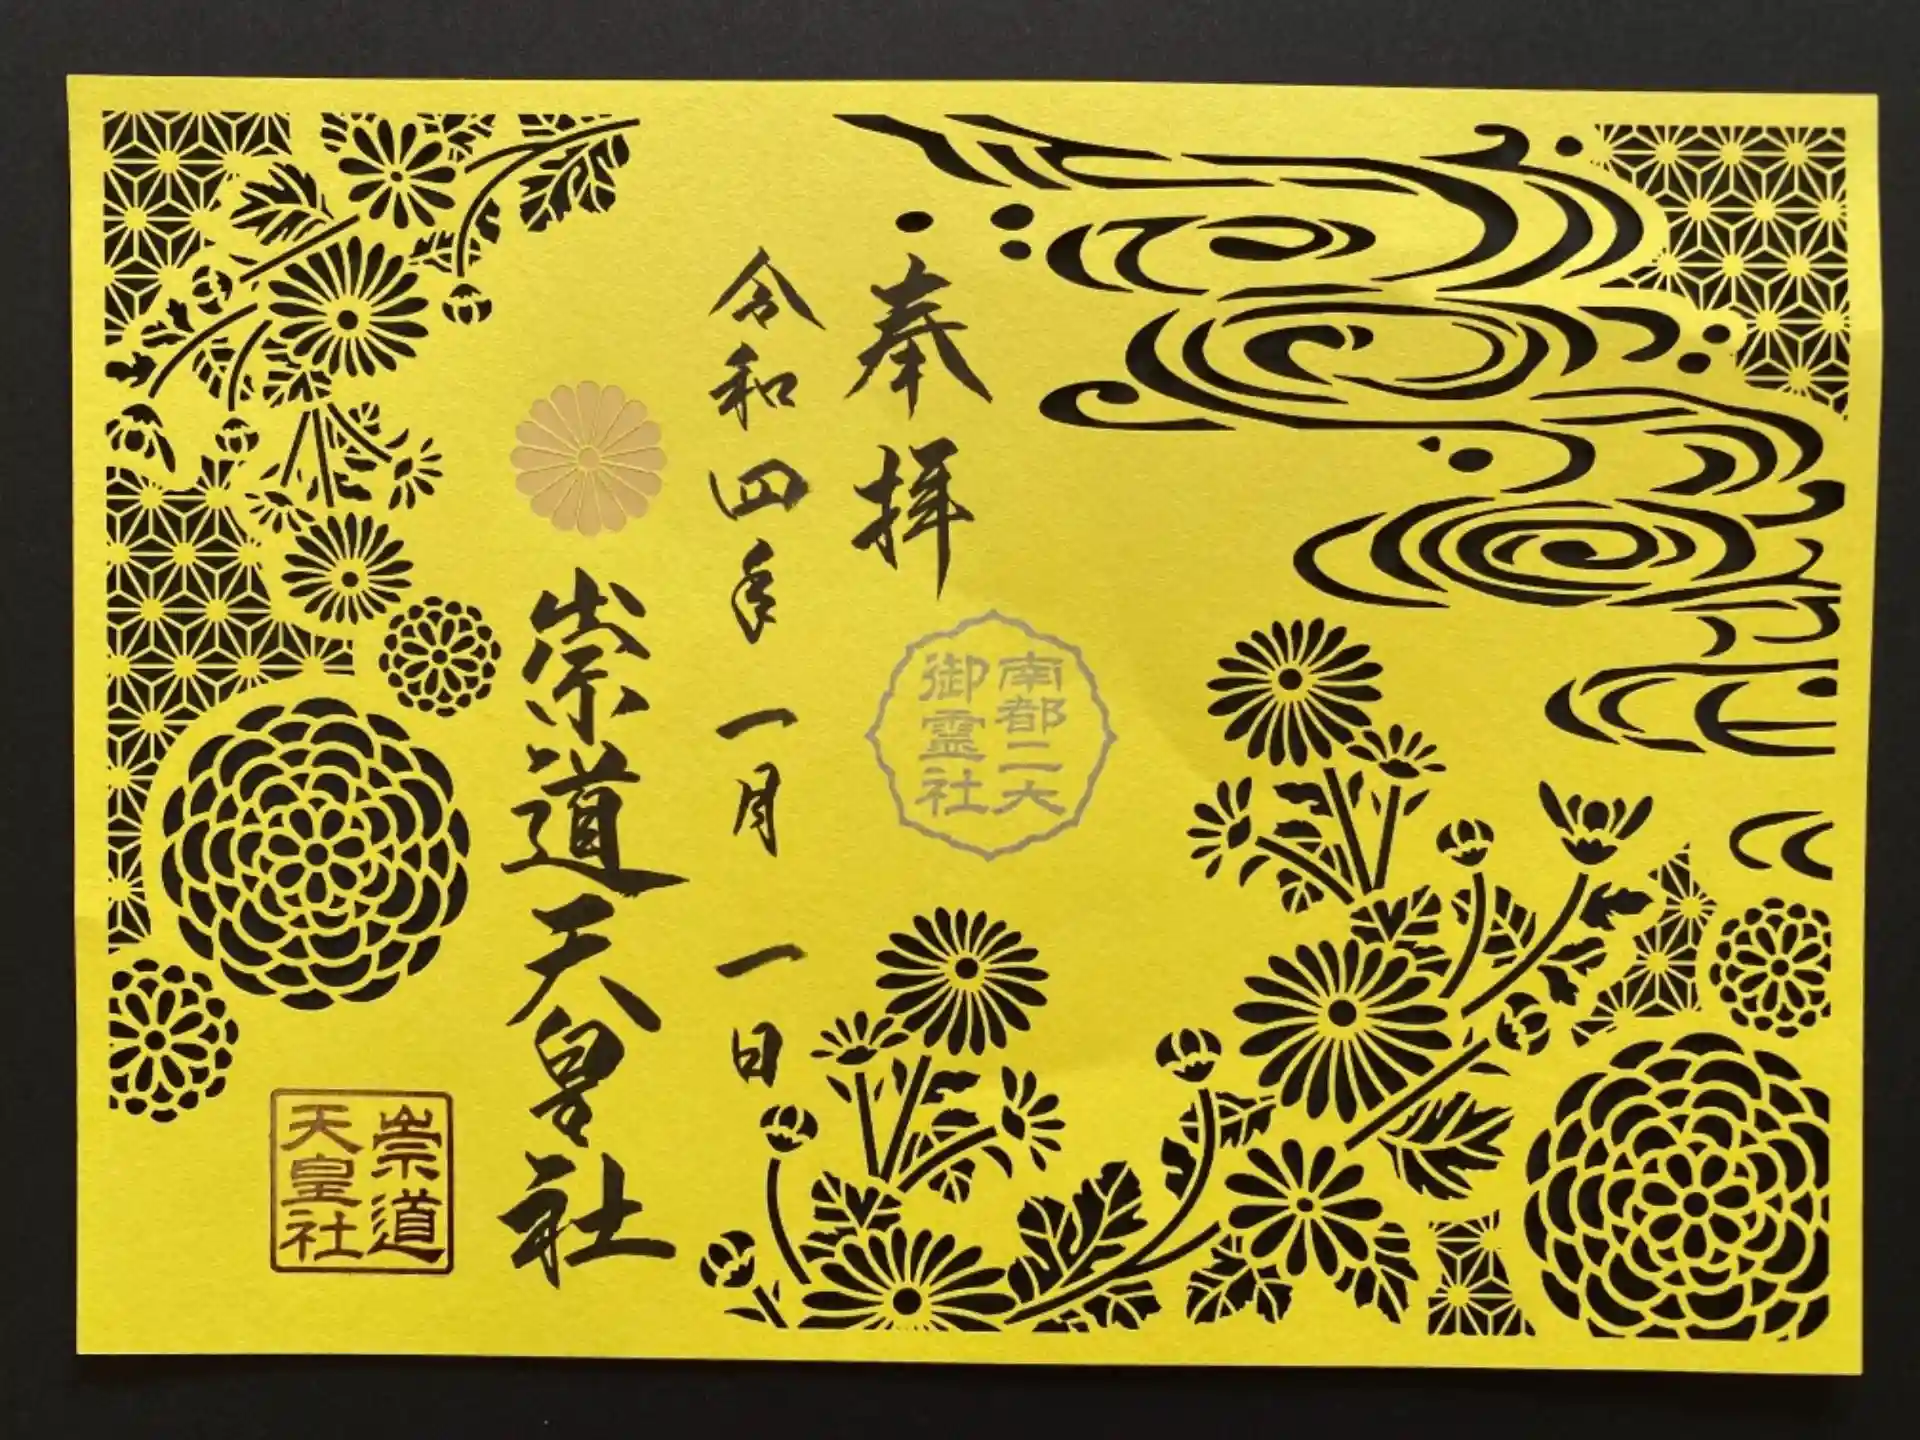 奉拝
南都二大
御霊社
令和四年一月一日
崇道天皇社
崇道
天皇社